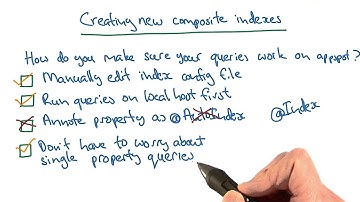 Creating new composite indexes
How do you make sure your queries work on appspot?
Manually edit index config file
Run queries on local host first
Annote property as @AutoIndex @Index
Don't have to worry about
single property queries